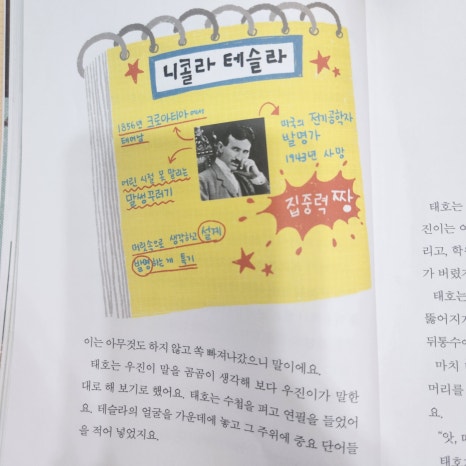 니콜라 테슬라
1856년 크로아티아에서
태어남
미국의 전기공학자
발명가
1943년 사망
어린 시절 못 말리는
말썽꾸러기
집중력 짱
머릿속으로 생각하고 설계
발명하는 게 특기
이는 아무것도 하지 않고 쏙 빠져나갔으니 말이에요.
태호는 우진이 말을 곰곰이 생각해 보다 우진이가 말한
대로 해 보기로 했어요. 태호는 수첩을 펴고 연필을 들었어
요. 테슬라의 얼굴을 가운데에 놓고 그 주위에 중요 단어들
을 적어 넣었지요.
태호는
진이는
리고, 학
가 버렸
태호는
뚫어지
뒤통수에
마치
머리를
요.
"앗,
태호